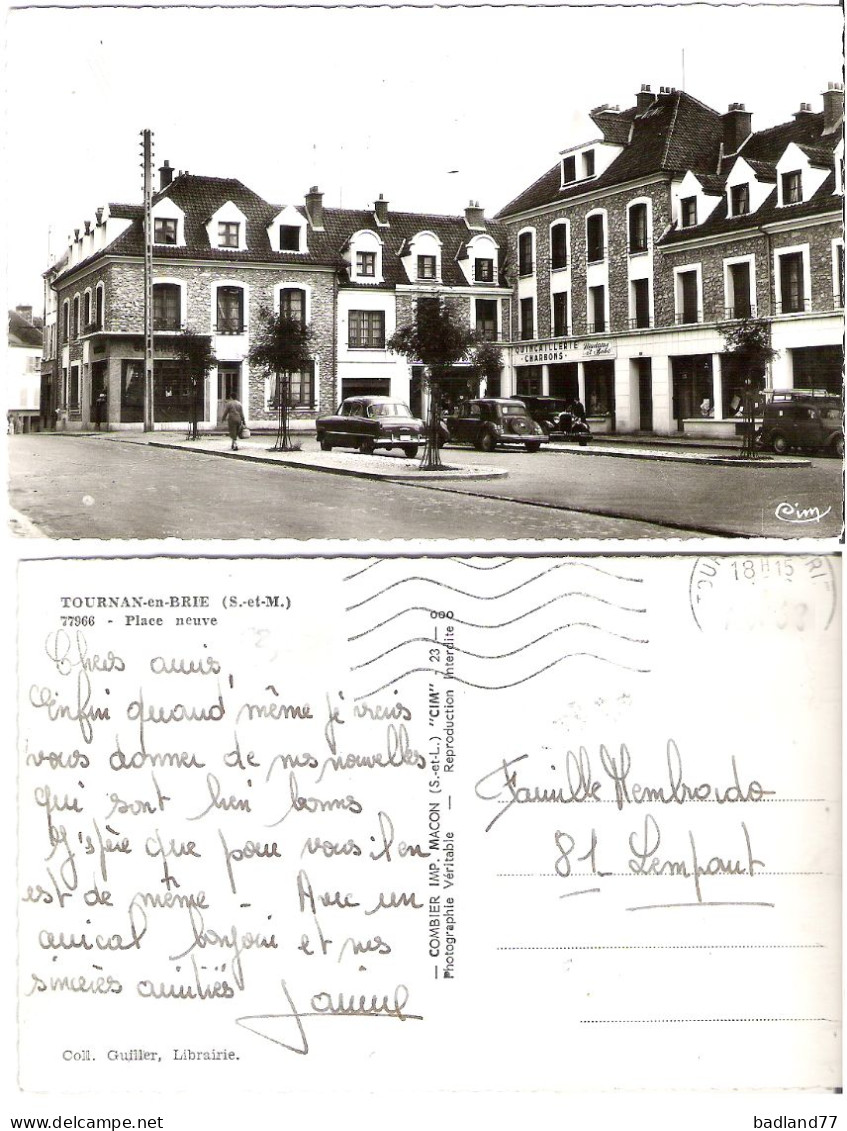 QUINCAILLERIE
- CHARBONS -
Cim
TOURNAN-en-BRIE (S.-et-M.)
77966 - Place neuve
Chers amis,
Enfin quand même je viens
vous donner de nos nouvelles
qui sont bien bonnes
J'espère que pour vous il en
est de même - Avec un
amical bonjour et nos
sincères amitiés
Janine
Coll. Guiller, Librairie.
— COMBIER IMP. MACON (S.-et-L.) "CIM" - 23 — 000
Photographie Véritable — Reproduction Interdite
18H15
Famille Membrado
81 Lempaut
badland77